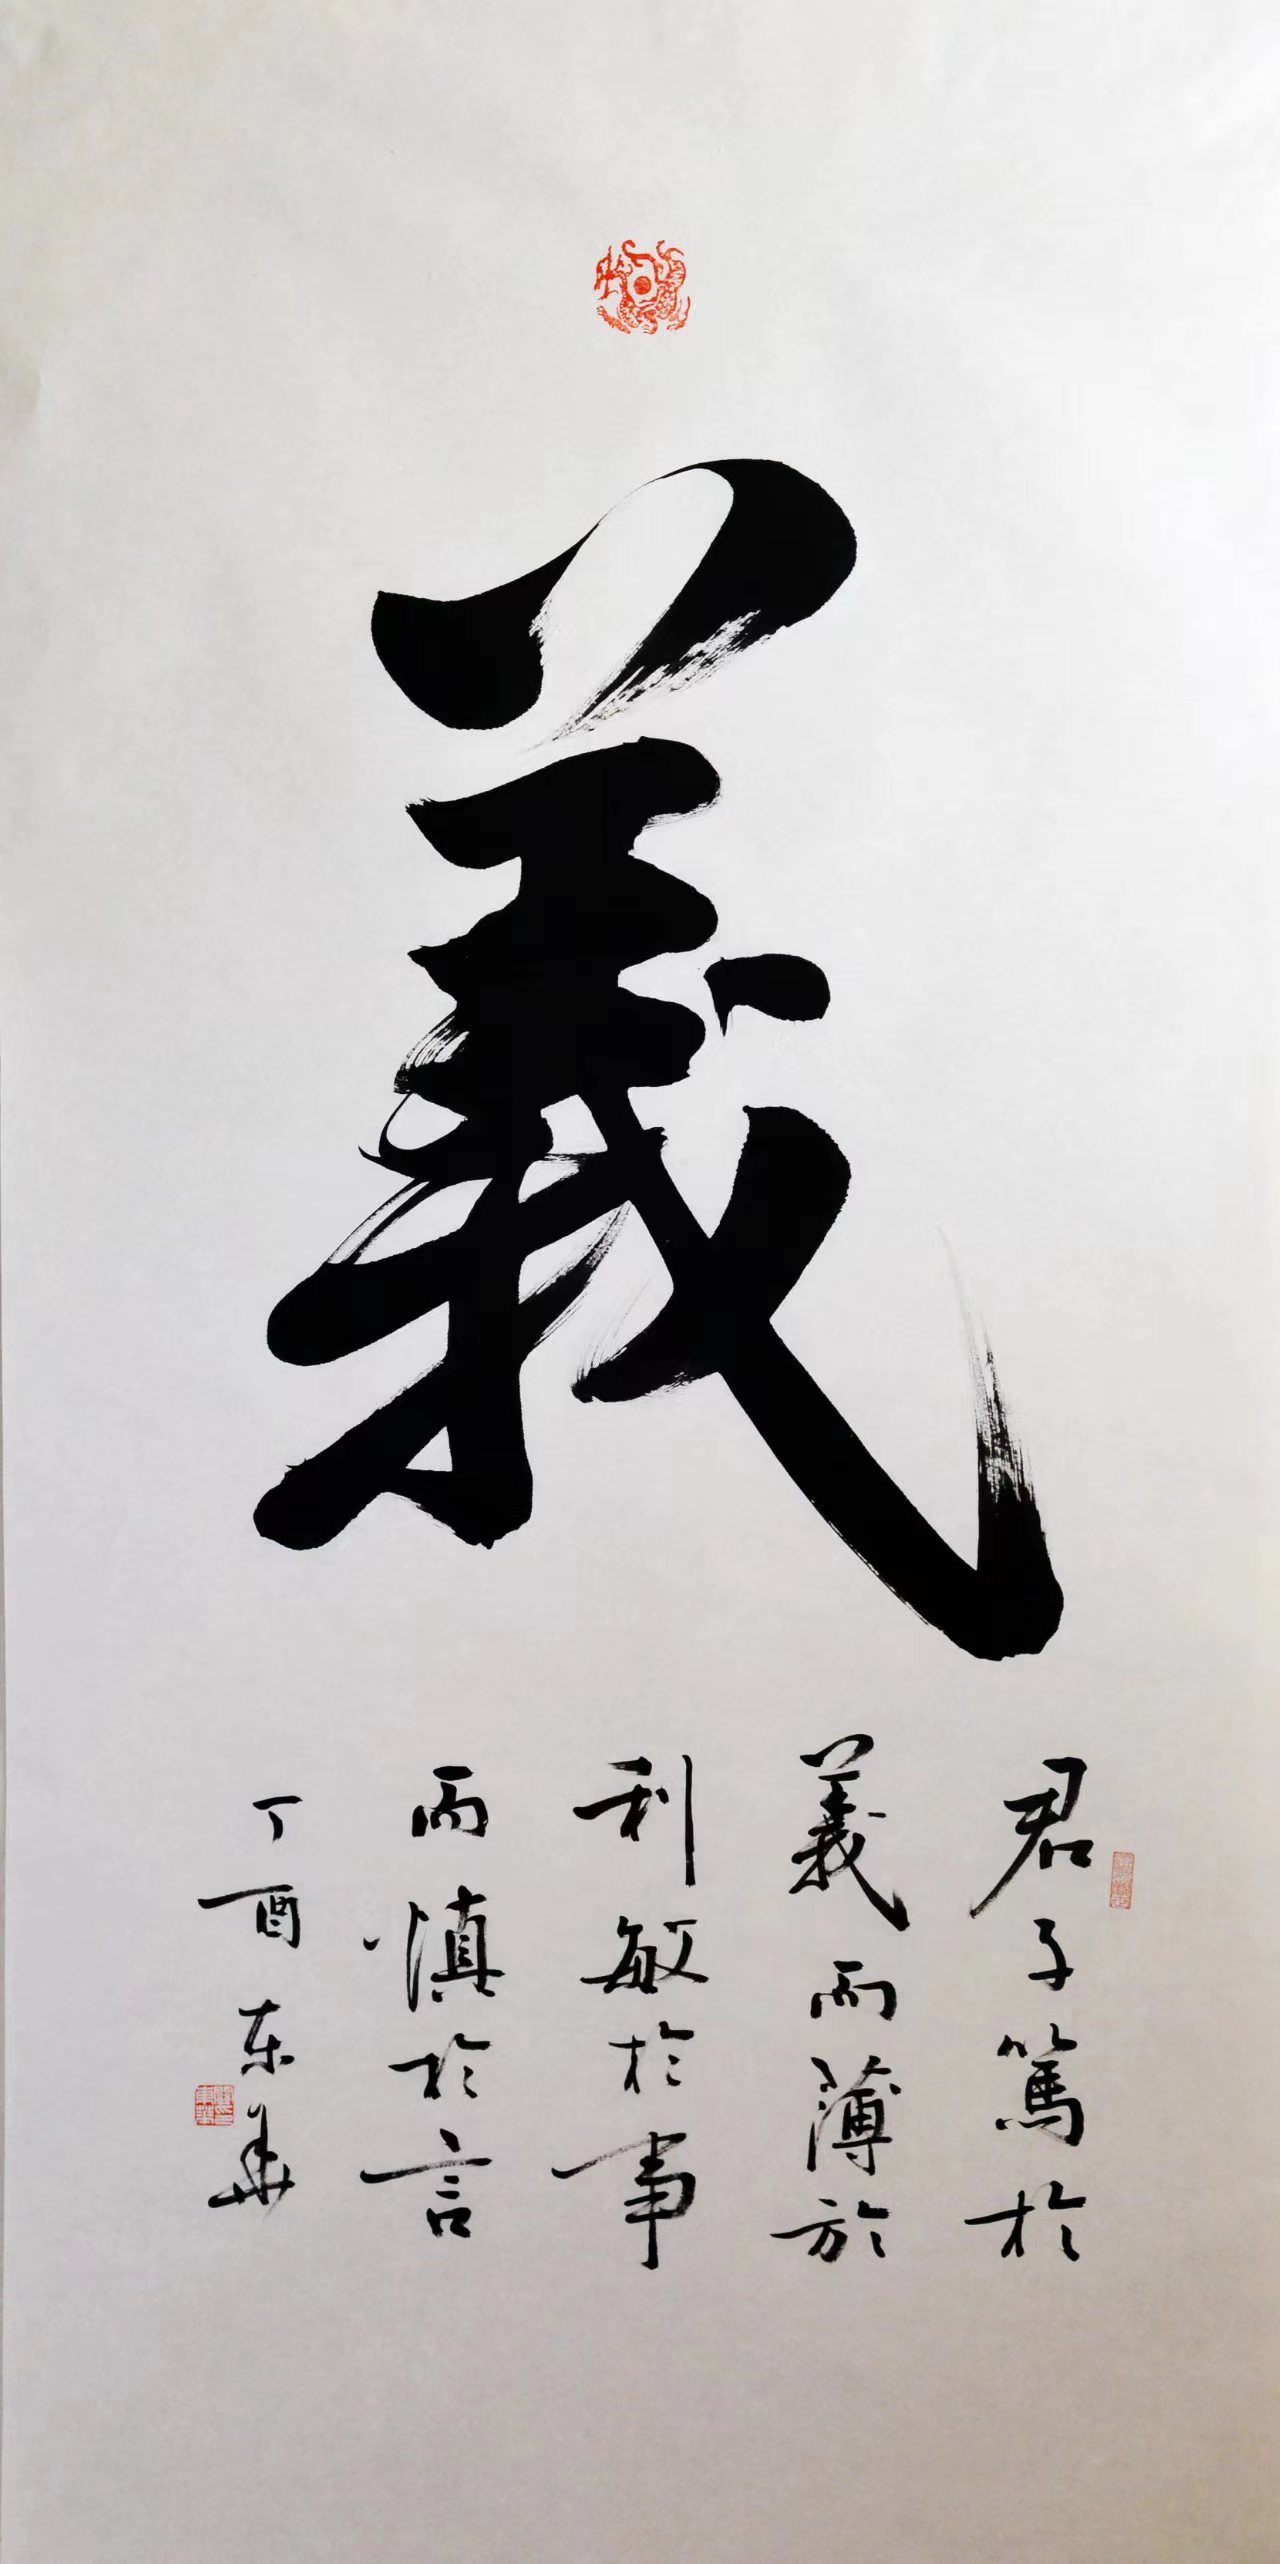 義
君子篤於
義而薄於
利敏於事
而慎於言
丁酉东华